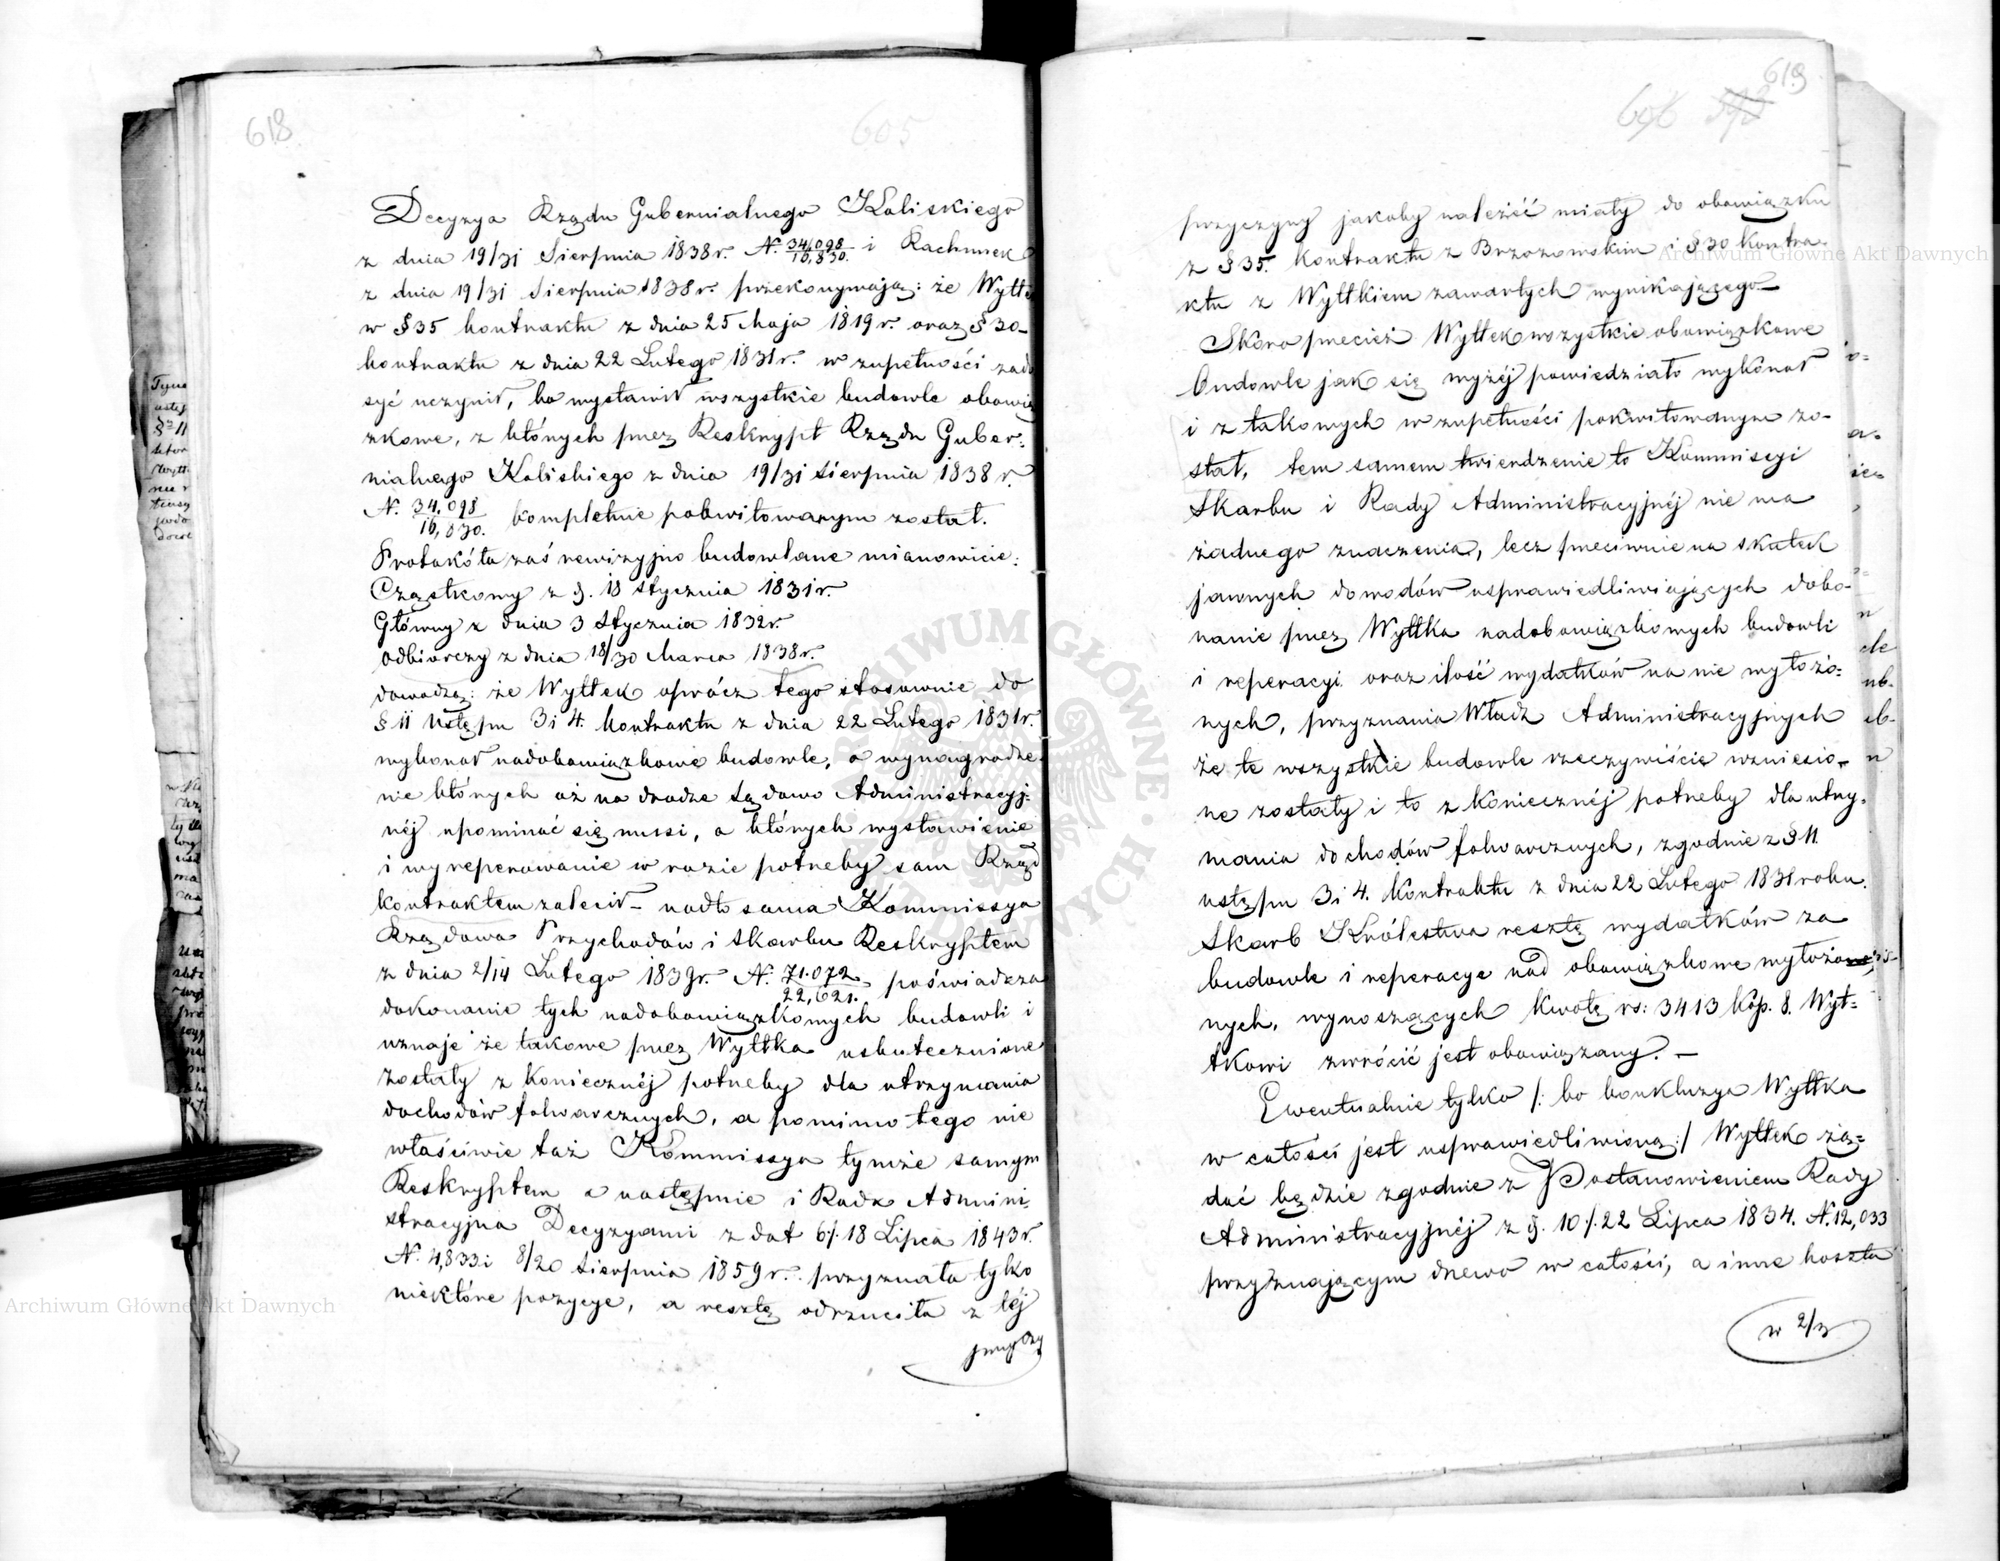 618
605
Decyzya Rządu Gubernialnego Kaliskiego
z dnia 19/31 Sierpnia 1838 r. N. 34,098/16,830. i Rachunek
z dnia 19/31 Sierpnia 1838 r. przekonywają: że Wyttek
w § 35 kontraktu z dnia 25 Maja 1819 r. oraz § 30
kontraktu z dnia 22 Lutego 1831 r. w zupełności zado
syć uczynił, bo wystawił wszystkie budowle obowią
zkowe, z których przez Reskrypt Rządu Guber-
nialnego Kaliskiego z dnia 19/31 Sierpnia 1838 r.
N. 34.098/16,830. kompletnie pokwitowanym został.
Protokóła zaś rewizyjno budowlane mianowicie:
Cząstkowy z d. 18 Stycznia 1831 r.
Główny z dnia 3 Stycznia 1832 r.
Odbiorczy z dnia 18/30 Marca 1838 r.
dowodzą: że Wyttek oprócz tego stosownie do
§ 11 Ustępu 3 i 4. kontraktu z dnia 22 Lutego 1831 r.
wykonał nadobowiązkowe budowle, o wynagrodze-
nie których aż na drodze Sądowo Administracyj-
néj upominać się musi, a których wystawienie
i wyreperowanie w razie potrzeby sam Rząd
kontraktem zalecił – nadto sama Kommissya
Rządowa Przychodów i Skarbu Reskryptem
z dnia 2/14 Lutego 1839 r. N. 71.072/22,621. poświadcza
dokonanie tych nadobowiązkowych budowli i
uznaje że takowe przez Wyttka uskutecznione
zostały z koniecznéj potrzeby dla utrzymania
dochodów folwarcznych, a pomimo tego nie
właściwie taż Kommissya tymże samym
Reskryptem a następnie i Rada Admini-
stracyjna Decyzyami z dat 6/18 Lipca 1843 r.
N. 4,833 i 8/20 Sierpnia 1859 r. przyznała tylko
niektóre pozycye, a resztę odrzuciła z téj
przyczy
619
606
przyczyny jakoby należéć miały do obowiązku
z § 35. kontraktu z Brzozowskim i § 30 kontra-
ktu z Wyttkiem zawartych wynikającego –
Skoro przecież Wyttek wszystkie obowiązkowe
budowle jak się wyżéj powiedziało wykonał
i z takowych w zupełności pokwitowanym zo-
stał, tem samem twierdzenie to Kommissyi
Skarbu i Rady Administracyjnéj nie ma
żadnego znaczenia, lecz przeciwnie na skutek
jawnych dowodów usprawiedliwiających doko-
nanie przez Wyttka nadobowiązkowych budowli
i reperacyi oraz ilość wydatków na nie wyłożo-
nych, przyznania Władz Administracyjnych
że te wszystkie budowle rzeczywiście wzniesio-
ne zostały i to z koniecznéj potrzeby dla utrzy-
mania dochodów folwarcznych, zgodnie z § 11.
ustępu 3 i 4. kontraktu z dnia 22 Lutego 1831 roku.
Skarb Królestwa resztę wydatków za
budowle i reperacye nad obowiązkowe wyłożo-
nych, wynoszących kwotę rs: 3413 kop. 8. Wyt-
tkowi zwrócić jest obowiązany. –
Ewentualnie tylko /: bo konkluzya Wyttka
w całości jest usprawiedliwioną :/ Wyttek żą-
dać będzie zgodnie z Postanowieniem Rady
Administracyjnéj z d. 10/22 Lipca 1834. N. 12,033
przyznającym drzewo w całości, a inne koszta
w 2/3
Archiwum Główne Akt Dawnych
Archiwum Główne Akt Dawnych
ARCHIWUM GŁÓWNE AKT DAWNYCH